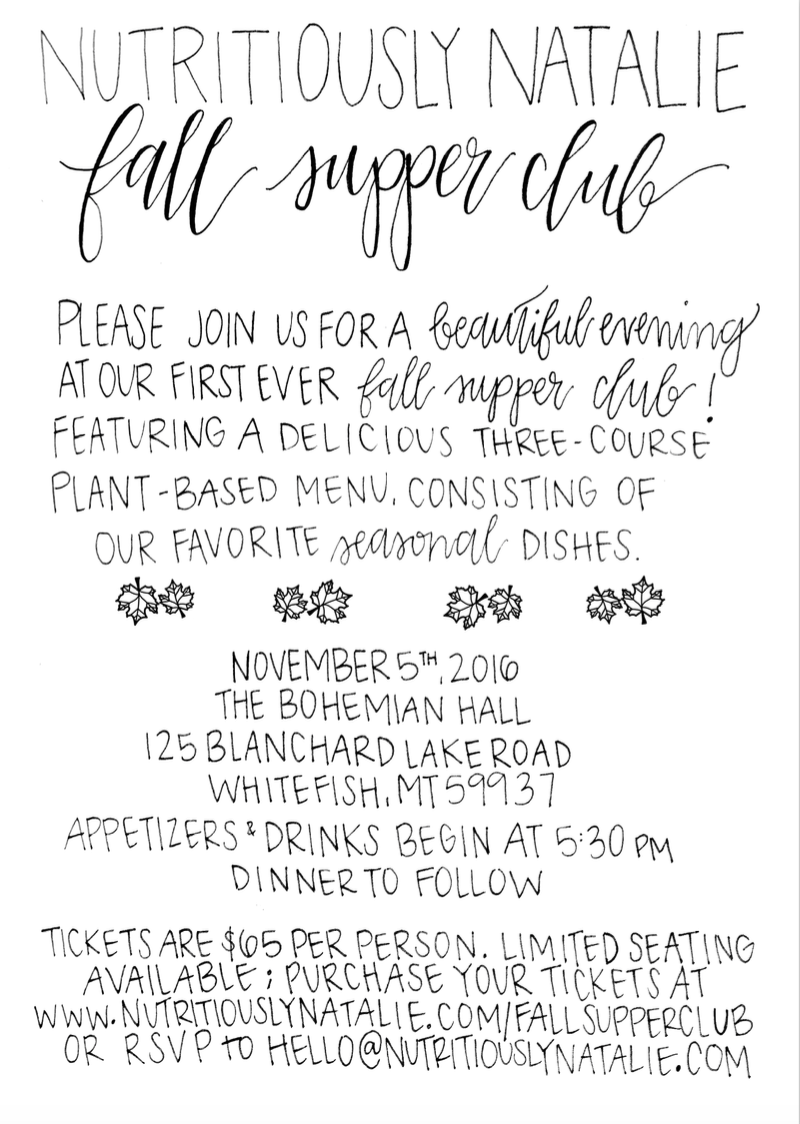 NUTRITIOUSLY NATALIE
fall supper club
PLEASE JOIN US FOR A beautiful evening
AT OUR FIRST EVER fall supper club!
FEATURING A DELICIOUS THREE-COURSE
PLANT-BASED MENU, CONSISTING OF
OUR FAVORITE seasonal DISHES.
NOVEMBER 5TH, 2016
THE BOHEMIAN HALL
125 BLANCHARD LAKE ROAD
WHITEFISH, MT 59937
APPETIZERS & DRINKS BEGIN AT 5:30 PM
DINNER TO FOLLOW
TICKETS ARE $65 PER PERSON. LIMITED SEATING
AVAILABLE; PURCHASE YOUR TICKETS AT
WWW.NUTRITIOUSLYNATALIE.COM/FALLSUPPERCLUB
OR RSVP to HELLO@NUTRITIOUSLYNATALIE.COM